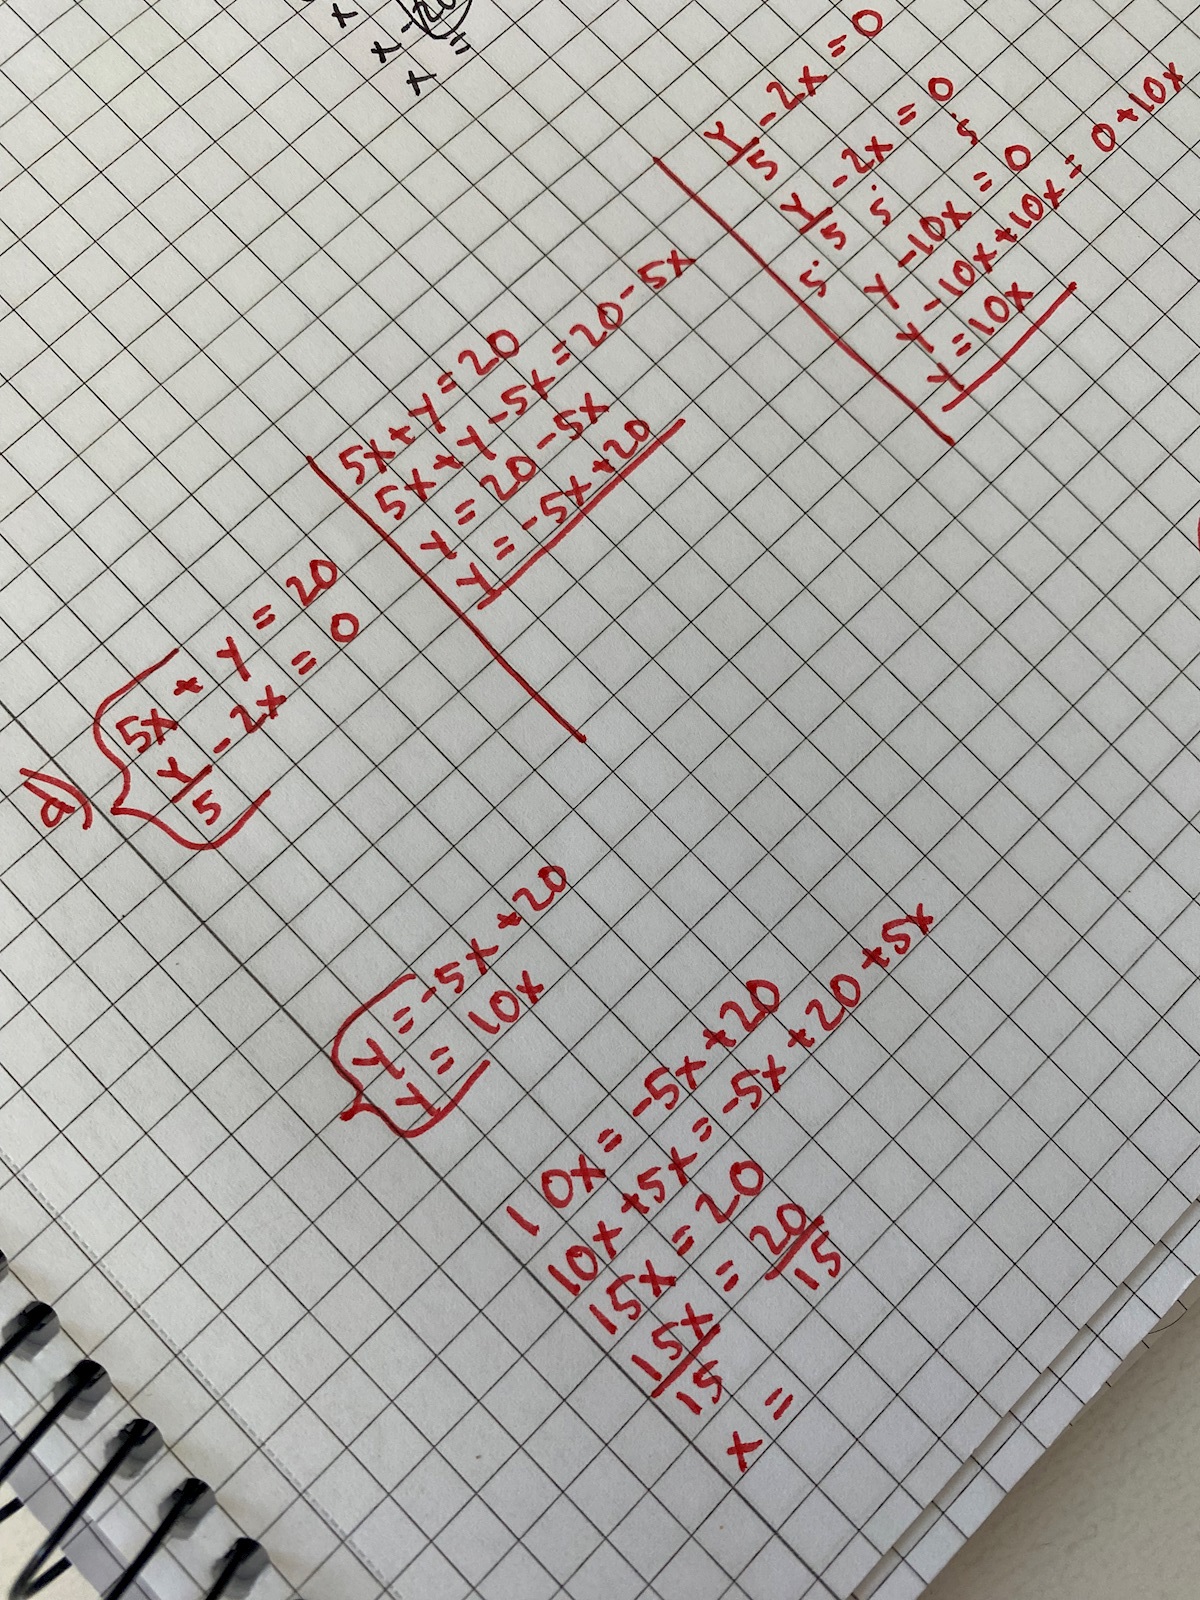 x
x - 20
x =
d) 5x + y = 20
y/5 - 2x = 0
5x + y = 20
5x + y - 5x = 20 - 5x
y = 20 - 5x
y = -5x + 20
y/5 - 2x = 0
y/5 - 2x = 0
5 5 5
y - 10x = 0
y - 10x + 10x = 0 + 10x
y = 10x
y = -5x + 20
y = 10x
10x = -5x + 20
10x + 5x = -5x + 20 + 5x
15x = 20
15x/15 = 20/15
x =